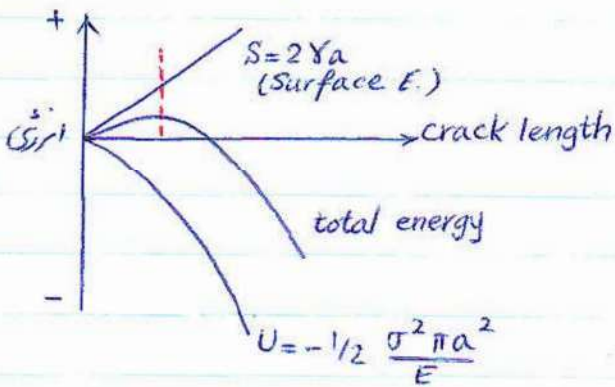 +
S = 2γa
(Surface E.)
انرژی
crack length
total energy
−
U = -1/2 σ²πa²/E